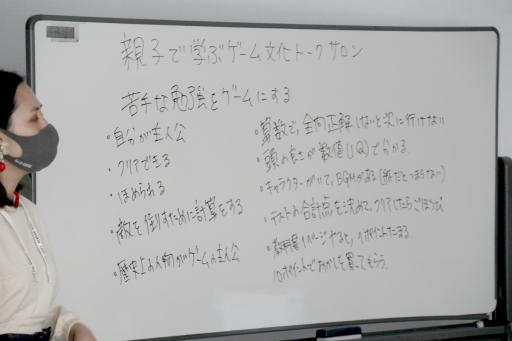 親子で学ぶゲーム文化トークサロン
苦手な勉強をゲームにする
・自分が主人公
・クリアできる
・ほめられる
・敵を倒すために計算をする
・歴史上の人物がゲームの主人公
・算数で、全問正解しないと次に行けない
・頭の良さが数値(IQ)で分かる
・キャラクターがいて、BGMがある(紙だとつまらない)
・テストの合計点を決めて、クリアしたらごほうび
・教科書1ページすると、1ポイントたまる
10ポイントでおかしを買ってもらう